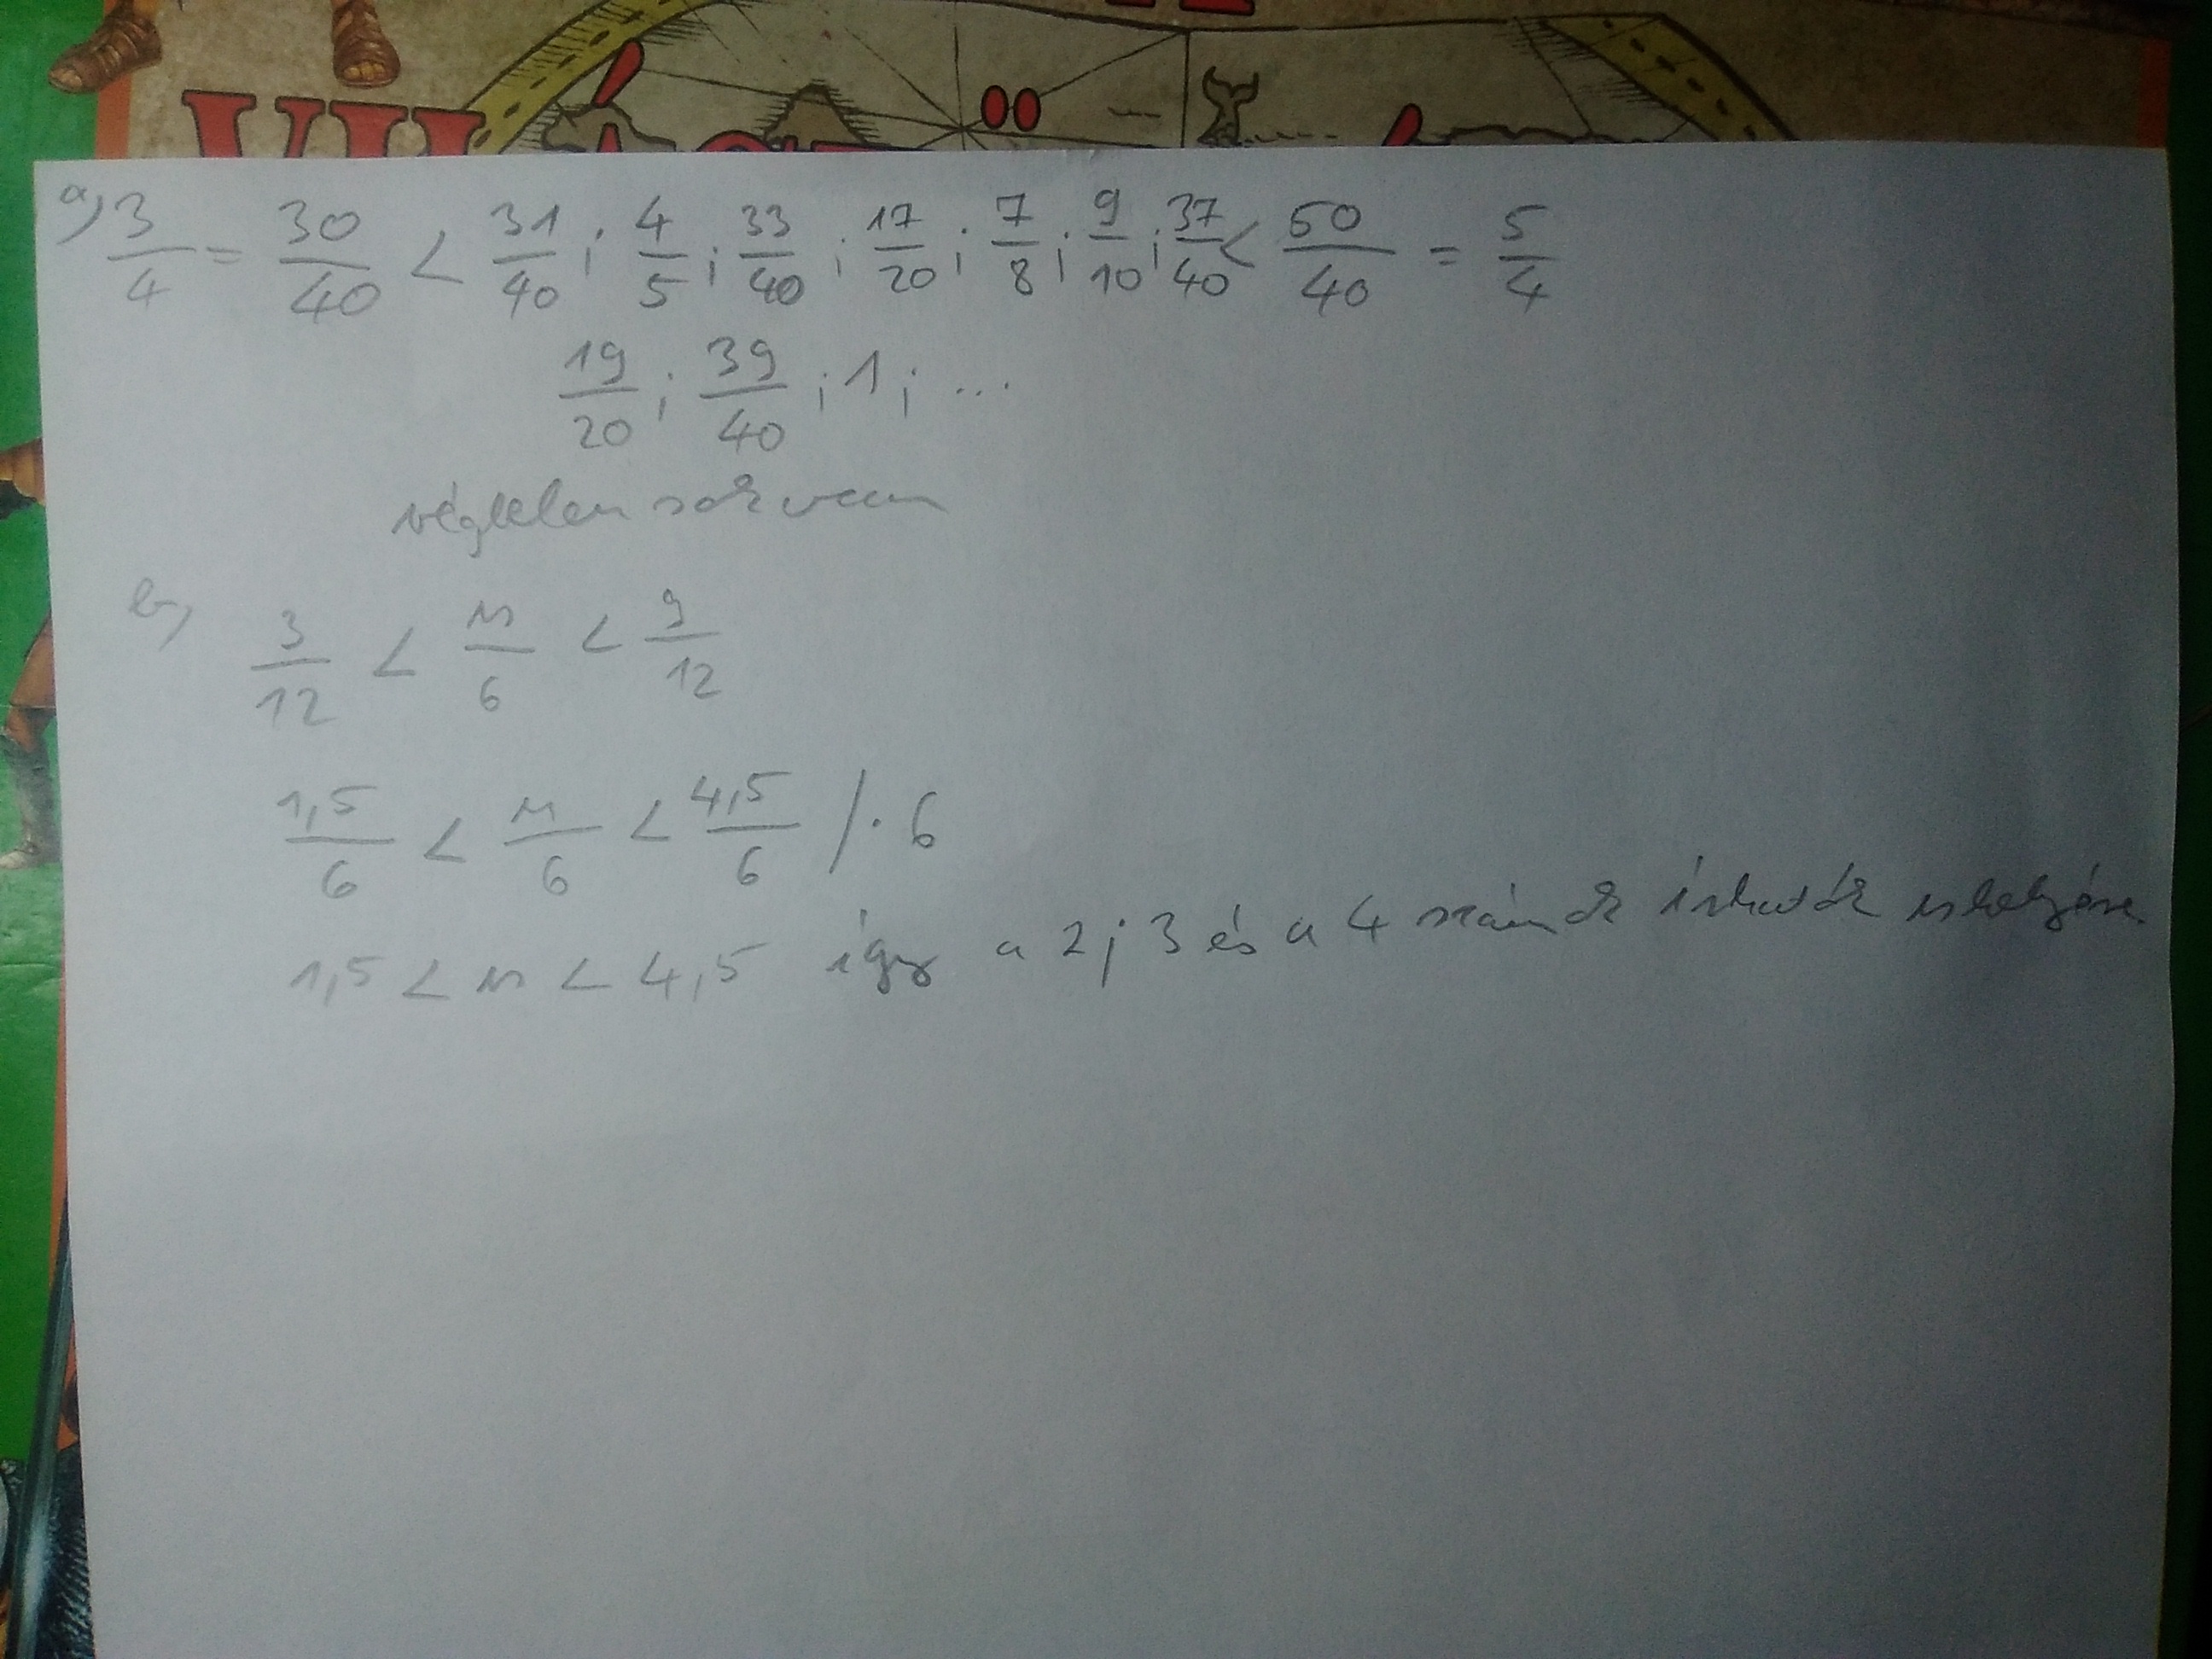 a) 3/4 = 30/40 < 31/40 ; 4/5 ; 33/40 ; 17/20 ; 7/8 ; 9/10 ; 37/40 < 50/40 = 5/4
19/20 ; 39/40 ; 1 ; ...
végtelen sok van
b) 3/12 < n/6 < 9/12
1,5/6 < n/6 < 4,5/6 / · 6
1,5 < n < 4,5 így a 2; 3 és a 4 számok írhatók n helyére.